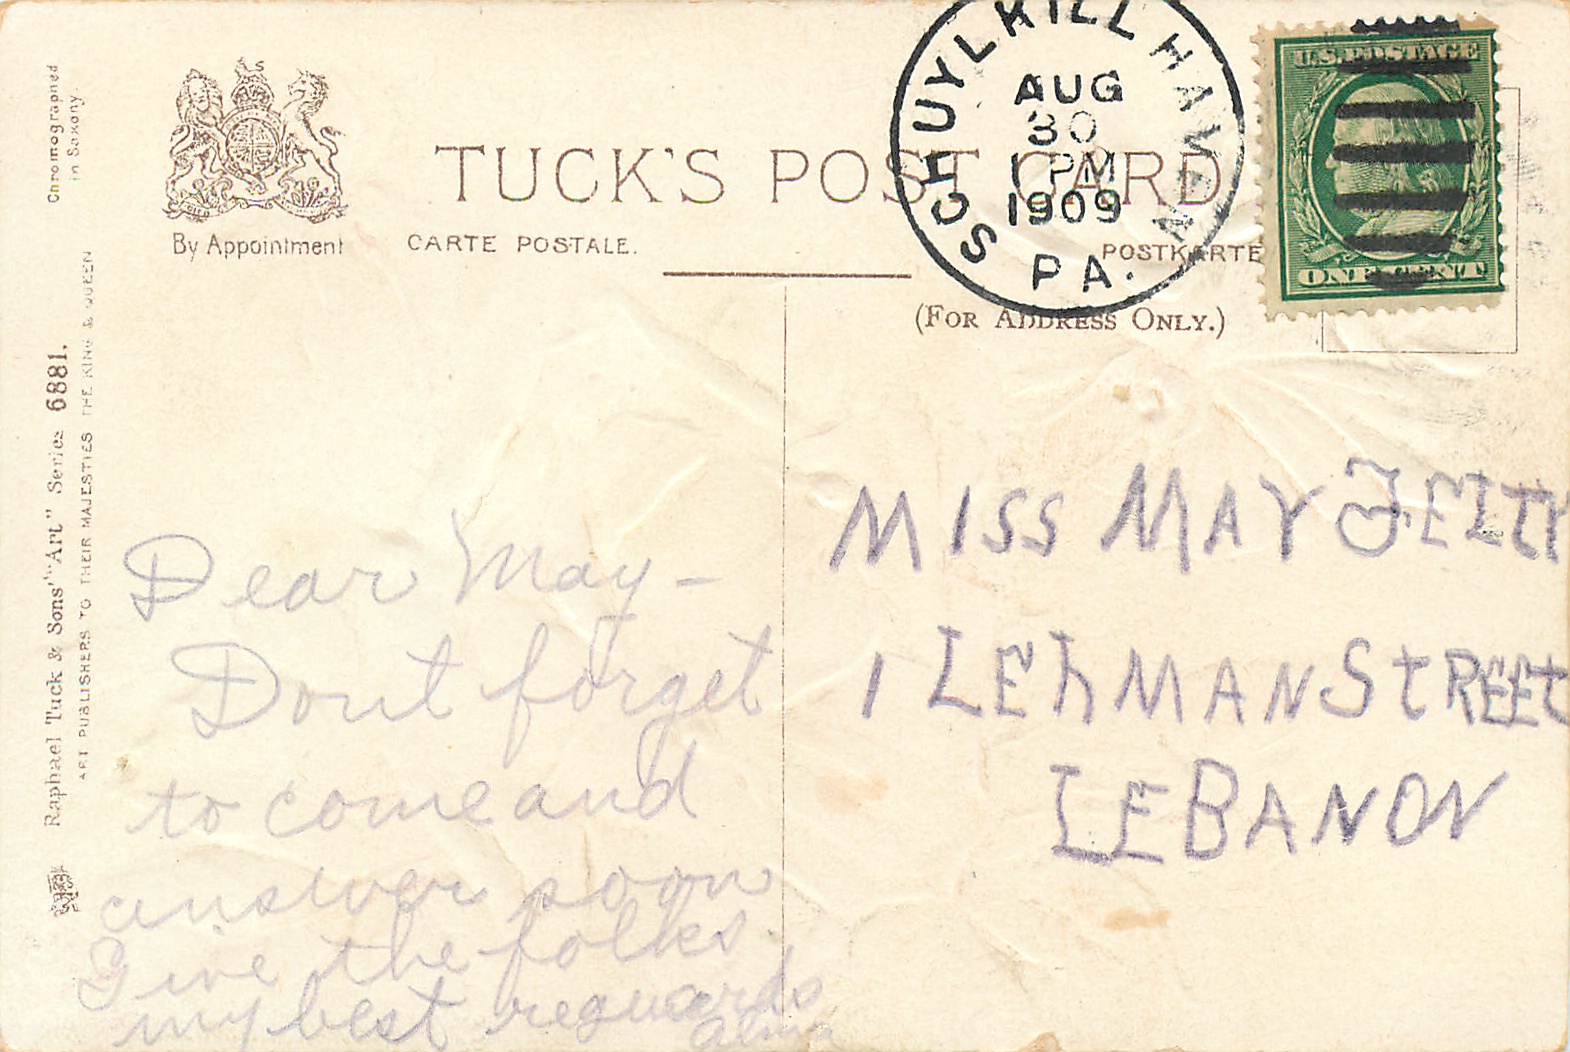 Chromographed
in Saxony.
By Appointment
TUCK'S POST CARD
CARTE POSTALE.
POSTKARTE
(FOR ADDRESS ONLY.)
SCHUYLKILL HAVEN
AUG
30
1 PM
1909
PA.
U.S. POSTAGE
ONE CENT
Raphael Tuck & Sons' "Art" Series 6881.
ART PUBLISHERS TO THEIR MAJESTIES THE KING & QUEEN
Dear May –
Dont forget
to come and
answer soon
Give the folks.
my best reguards
Alma
MISS MAY FELTY
1 LEhMAN StREEt
LEBANON